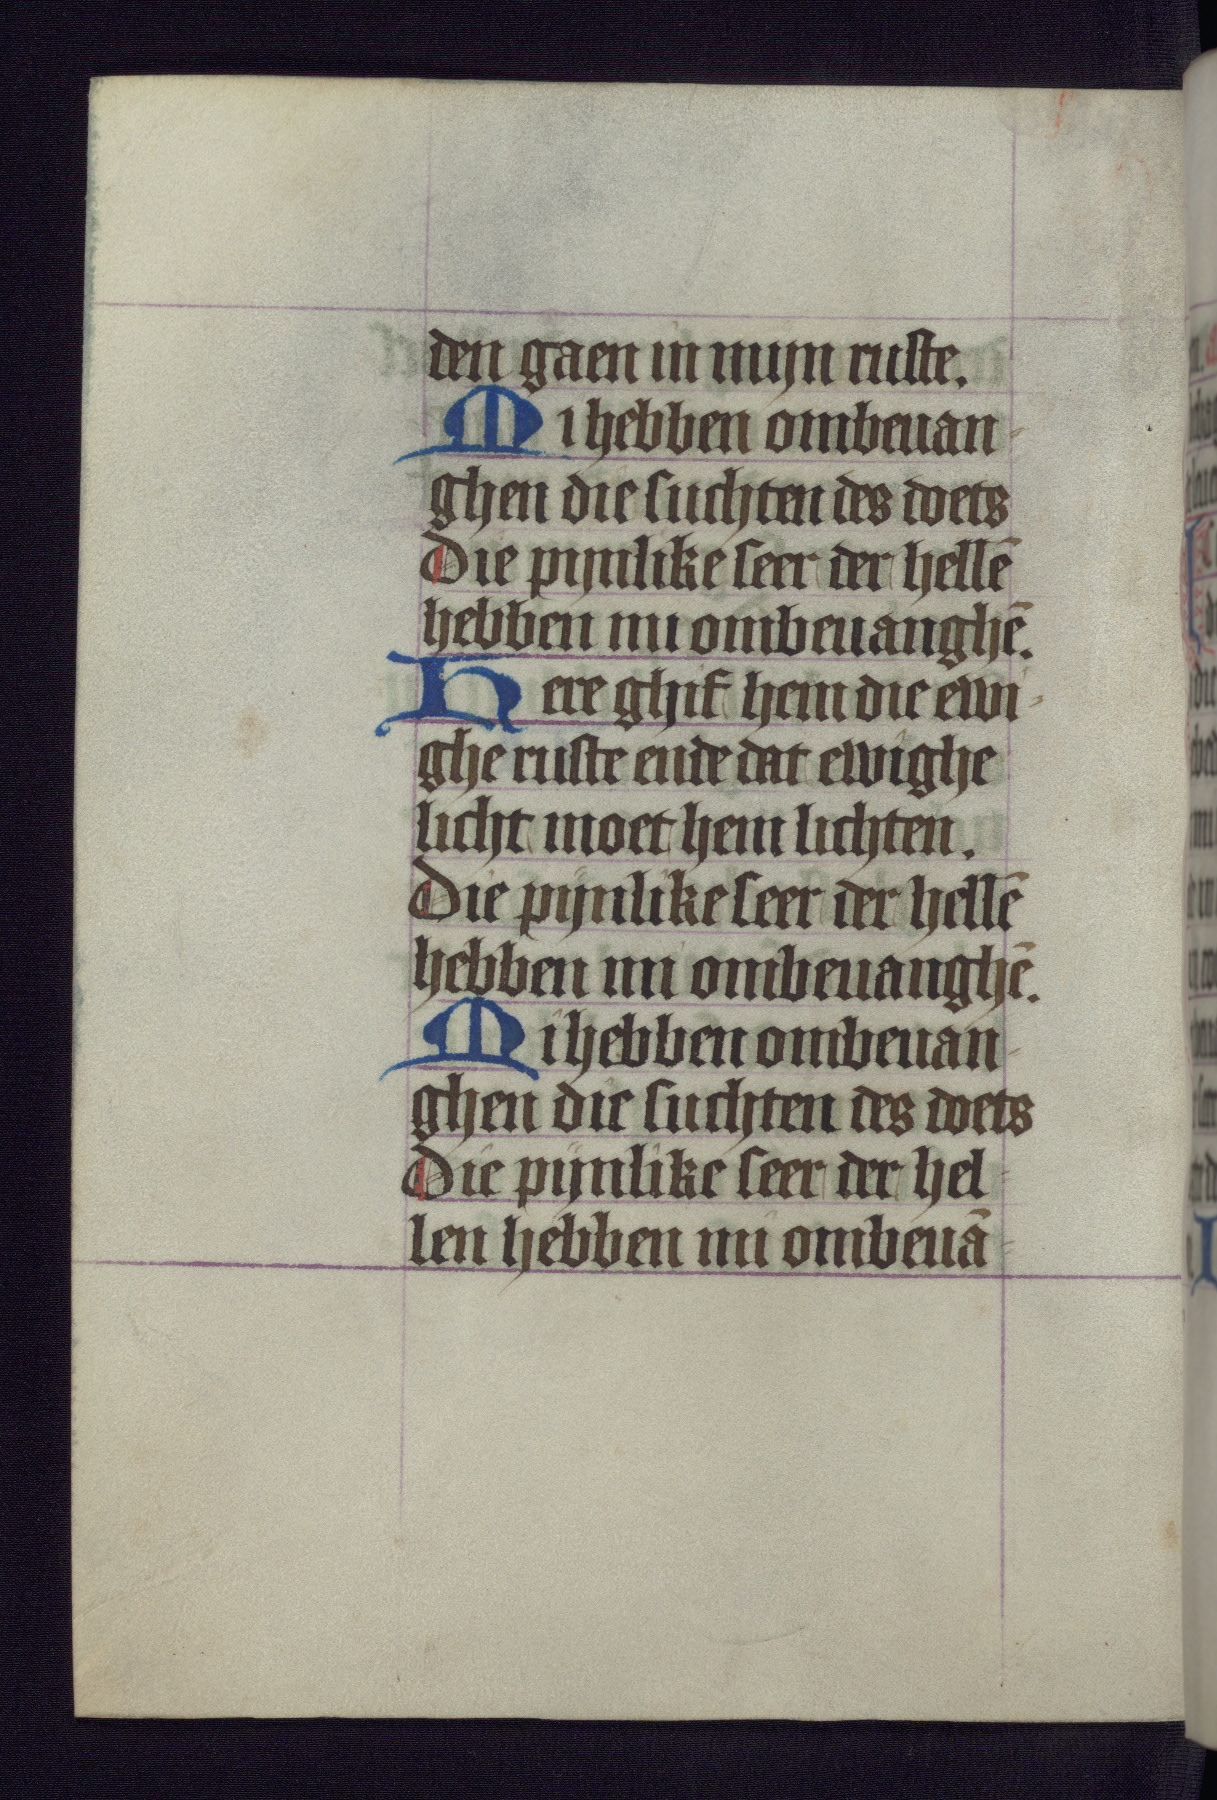 den gaen in mijn ruste.
Mi hebben ombeuan-
ghen die suchten des doets
Die pijnlike seer der hellē
hebben mi ombeuanghē.
Here ghif hem die ewi-
ghe ruste ende dat ewighe
licht moet hem lichten.
Die pijnlike seer der hellē
hebben mi ombeuanghē.
Mi hebben ombeuan-
ghen die suchten des doets
Die pijnlike seer der hel-
len hebben mi ombeuā-